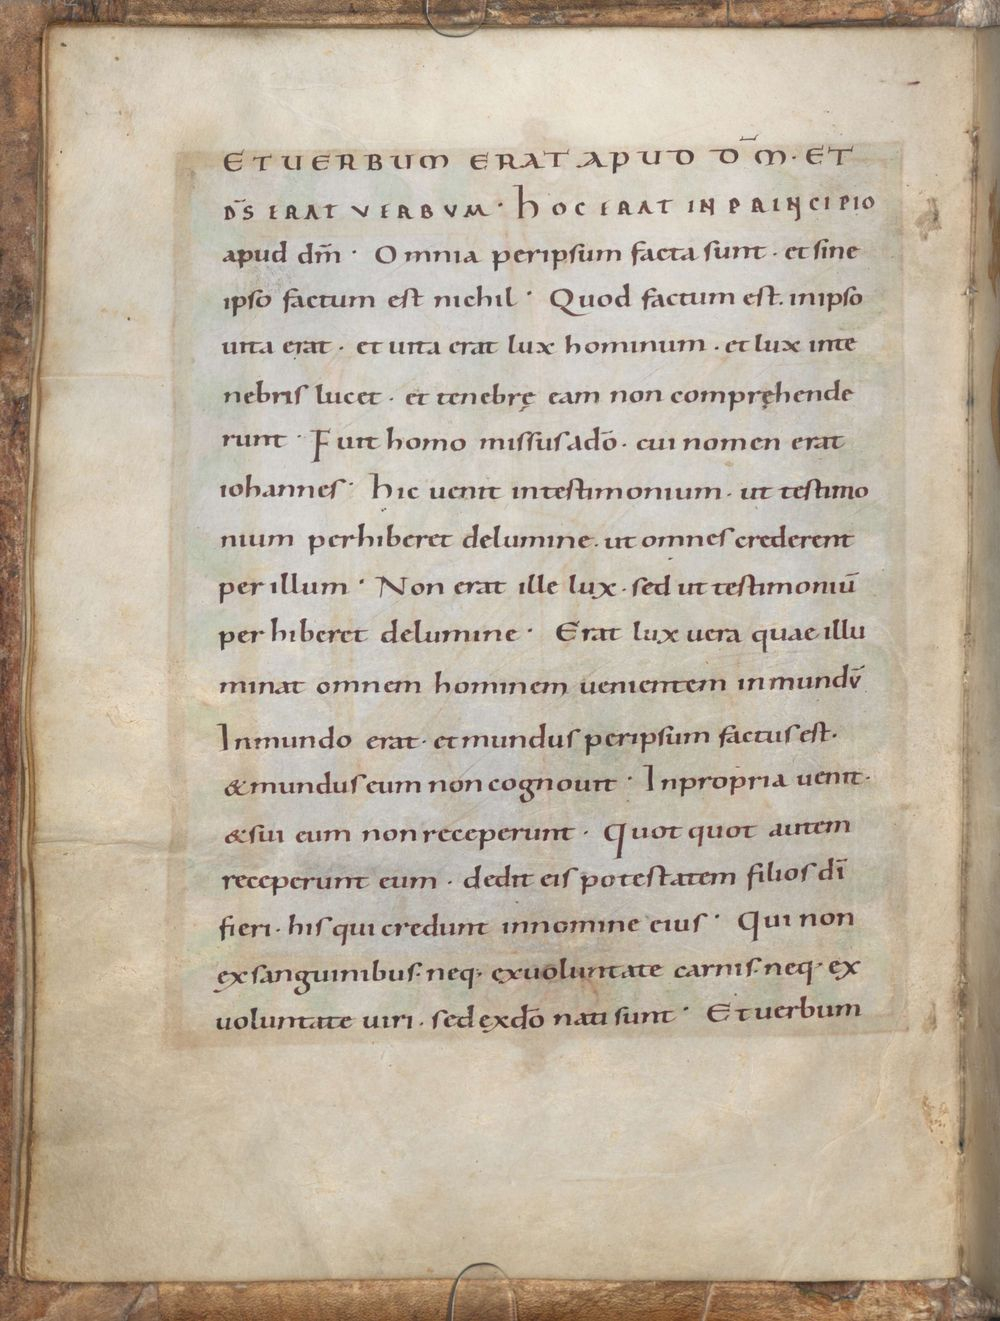 ETUERBUM ERAT APUD DM̄· ET
DS̄ ERAT VERBVM· HOC ERAT IN PRINCIPIO
apud dm̄· Omnia peripsum facta sunt· et sine
ipso factum est nichil· Quod factum est· inipso
uita erat· et uita erat lux hominum· et lux inte
nebris lucet· et tenebrę eam non compręhende
runt· Fuit homo missus ado̅· cui nomen erat
iohannes· hic uenit intestimonium· ut testimo
nium perhiberet delumine· ut omnes crederent
per illum· Non erat ille lux· sed ut testimoniū
perhiberet delumine· Erat lux uera quae illu
minat omnem hominem uenientem in mundv̄
Inmundo erat· et mundus peripsum factus est·
& mundus eum non cognouit· Inpropria uenit·
& sui eum non receperunt· Quot quot autem
receperunt eum· dedit eis potestatem filios dī
fieri· his qui credunt innomine eius· Qui non
ex sanguinibus· neq· exuoluntate carnis· neq· ex
uoluntate uiri· sed exdō nati sunt· Et uerbum